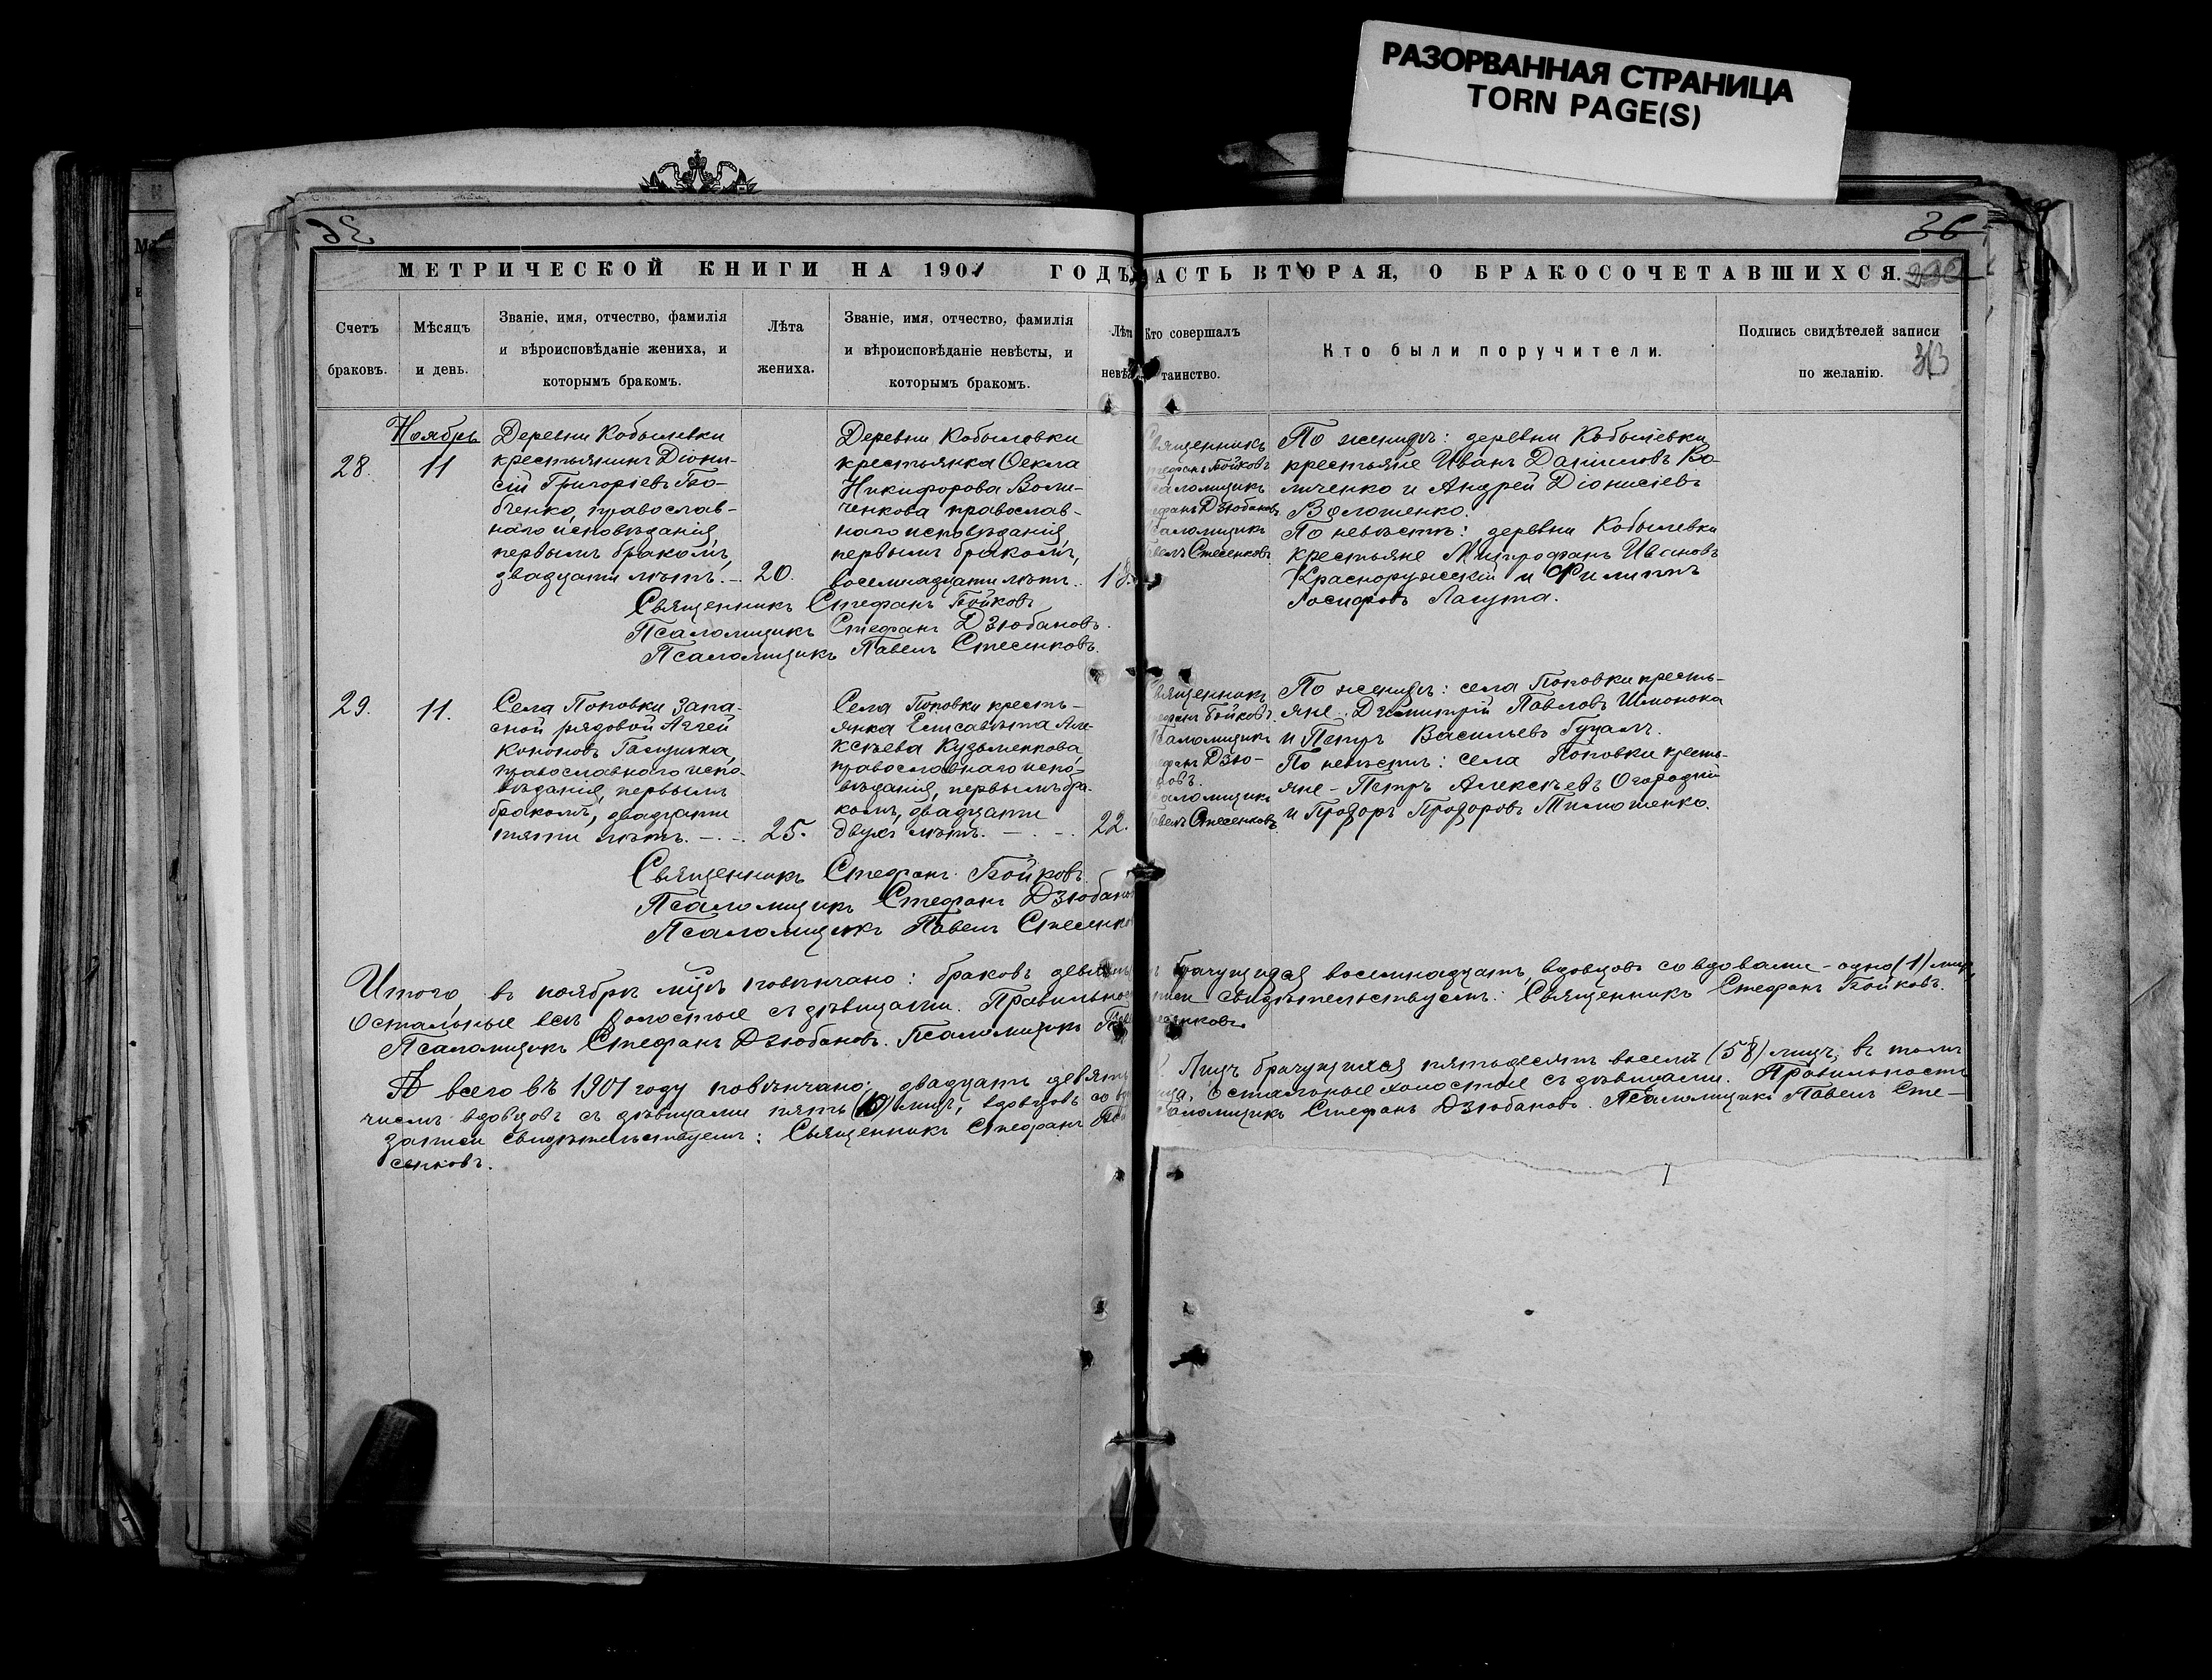 РАЗОРВАННАЯ СТРАНИЦА
TORN PAGE(S)
36
МЕТРИЧЕСКОЙ КНИГИ НА 1901 ГОДЪ
АСТЬ ВТОРАЯ, О БРАКОСОЧЕТАВШИХСЯ.
Счетъ браковъ.
Мѣсяцъ и день.
Званіе, имя, отчество, фамилія
и вѣроисповѣданіе жениха, и
которымъ бракомъ.
Лѣта жениха.
Званіе, имя, отчество, фамилія
и вѣроисповѣданіе невѣсты, и
которымъ бракомъ.
Лѣта
невѣ
Кто совершалъ
таинство.
Кто были поручители.
Подпись свидѣтелей записи
по желанію.
Ноябрь
28.
11
Деревни Кобылевки
крестьянинъ Діони-
сій Григоріевъ Бо-
бченко, православ-
наго исповѣданія,
первымъ бракомъ,
двадцати лѣтъ. –
20.
Деревни Кобылевки
крестьянка Ѳекла
Никифорова Воли-
ченкова православ-
наго исповѣданія,
первымъ бракомъ,
восемнадцати лѣтъ.
18.
Священникъ
Стефанъ Бойковъ
Псаломщикъ
Дзюбановъ
Псаломщикъ
Стесенковъ.
По женихѣ: деревни Кобылевки
крестьяне Иванъ Даниловъ Во-
личенко и Андрей Діонисіевъ
Волошенко.
По невѣстѣ: деревни Кобылевки
крестьяне Митрофанъ Ивановъ
Красноружскій и Филиппъ
Іосифовъ Лагута.
Священникъ Стефанъ Бойковъ
Псаломщикъ Стефанъ Дзюбановъ.
Псаломщикъ Павелъ Стесенковъ.
29.
11.
Села Поповки запа-
сной рядовой Аггей
Кононовъ
православнаго испо-
вѣданія, первымъ
бракомъ, двадцати
пяти лѣтъ. – . –
25.
Села Поповки кресть-
янка Елисавета Але-
ксѣева Кузьменкова,
православнаго испо-
вѣданія, первымъ бра-
комъ, двадцати
двухъ лѣтъ. – . – .
22.
Священникъ
Бойковъ
Псаломщикъ
Дзю-
новъ.
Псаломщикъ
Стесенковъ
По женихѣ: села Поповки кресть-
яне: Димитрій Павловъ Шмонока
и Петръ Васильевъ
По невѣстѣ: села Поповки кресть-
яне – Петръ Алексѣевъ Огородній
и Прохоръ Прохоровъ Тимошенко.
Священникъ Стефанъ Бойковъ.
Псаломщикъ Стефанъ Дзюбанов
Псаломщикъ Павелъ Стесенков
Итого, въ ноябрѣ м-цѣ повѣнчано: браковъ девять
брачущихся восемнадцать, вдовцовъ со вдовами – одно (1) лицо,
Остальные всѣ холостые съ дѣвицами. Правильност
писи свидѣтельствуемъ: Священникъ Стефанъ Бойковъ.
Псаломщикъ Стефанъ Дзюбановъ. Псаломщикъ
сенковъ.
А всего въ 1901 году повѣнчано: двадцать девять
Лицъ брачущихся пятьдесятъ восемь (58) лицъ, въ томъ
числѣ вдовцовъ съ дѣвицами пять лицъ, вдовцовъ со
Остальные холостые съ дѣвицами. Правильность
записи свидѣтельствуемъ: Священникъ Стефанъ
Псаломщикъ Стефанъ Дзюбановъ. Псаломщикъ Павелъ Сте-
сенковъ.